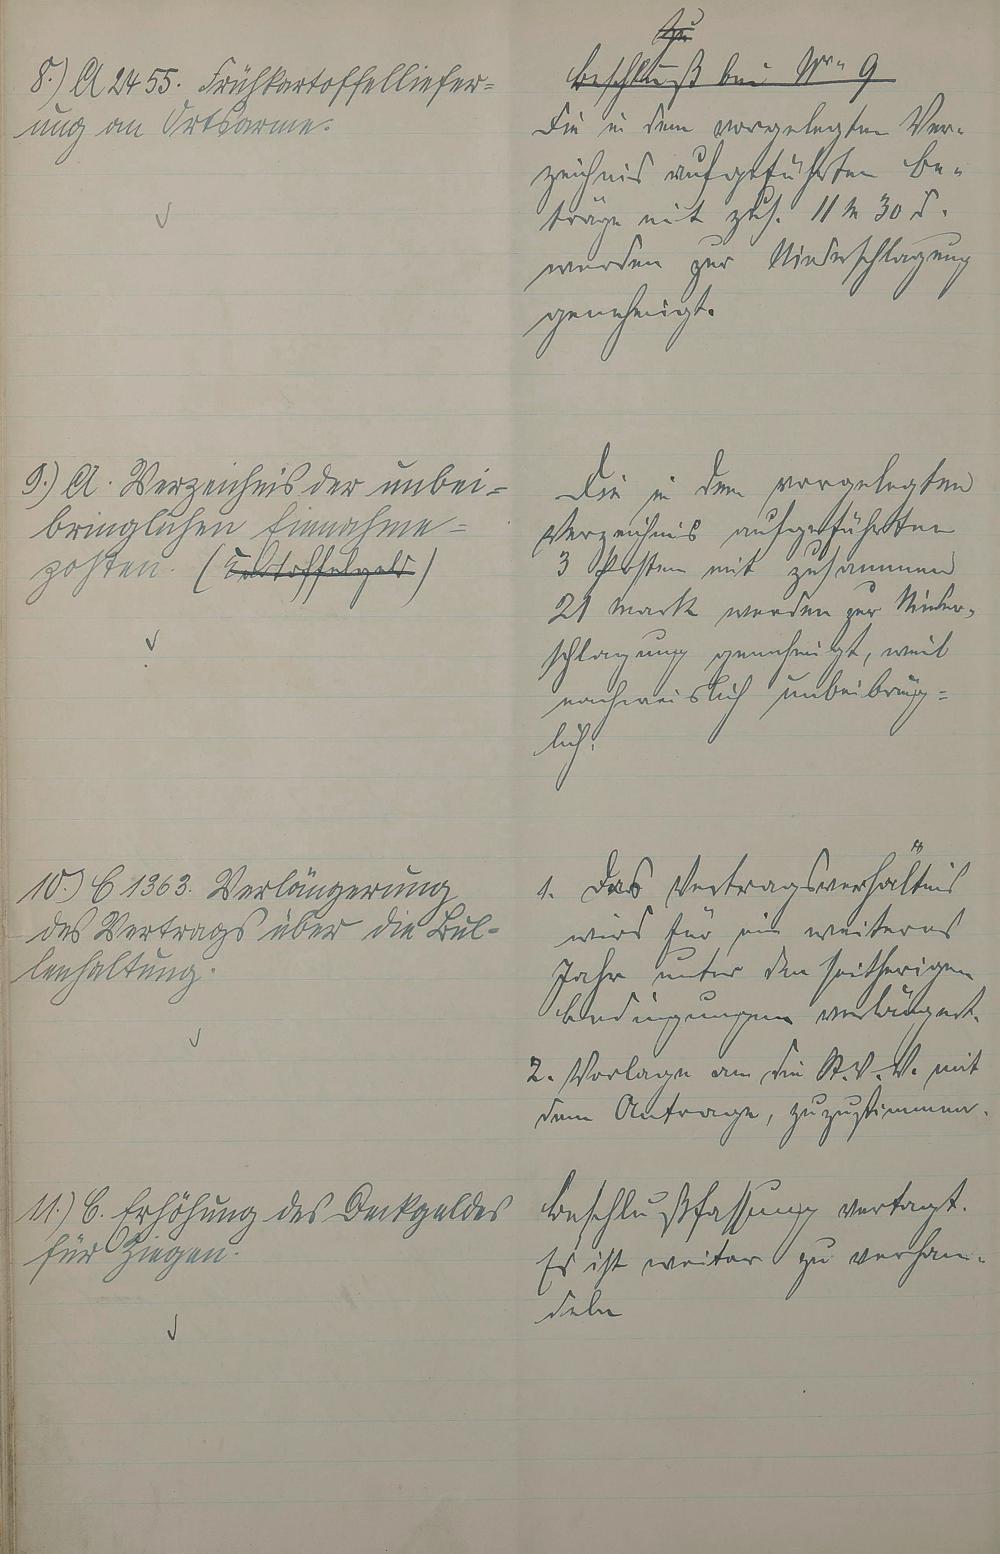 8.) A 2455. Frühkartoffelliefer=
ung an Ortsarme.
Zu
Beschluß bei Nr. 9
Die in dem vorgelegten Ver-
zeichnis aufgeführten Be-
träge mit zus. 11 M 30 d.
werden zur Niederschlagung
genehmigt.
9.) A. Verzeichnis der unbei=
bringlichen Einnahme=
posten. (Kartoffelgeld)
Die in dem vorgelegten
Verzeichnis aufgeführten
3 Posten mit zusammen
21 Mark werden zur Nieder-
schlagung genehmigt, weil
nachweislich unbeibring=
lich.
10.) C 1363. Verlängerung
des Vertrags über die Bul-
lenhaltung.
1. Das Vertragsverhältnis
wird für ein weiteres
Jahr unter den seitherigen
Bedingungen verlängert.
2. Vorlage an die St.V.V. mit
dem Antrage, zuzustimmen.
11.) C. Erhöhung des Deckgeldes
für Ziegen.
Beschlußfassung vertagt.
Es ist weiter zu verhan-
deln